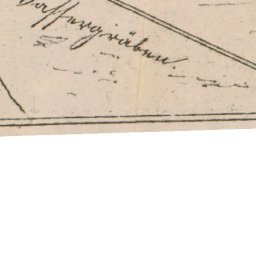 Wassergräben.